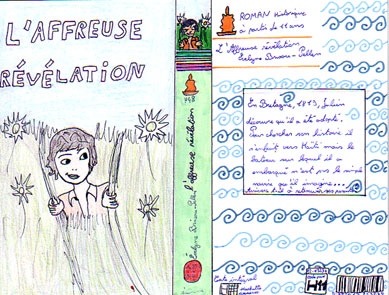 L'AFFREUSE
RÉVÉLATION
748
l'affreuse révélation
Evelyne Brisou-Pellen
ROMAN Historique
à partir de 11 ans
L'Affreuse révélation
Evelyne Brisou-Pellen
En Bretagne, 1793, Julien
découvre qu'il a été adopté.
Pour chercher son histoire il
s'enfuit vers Haïti mais le
bateau sur lequel il a
embarqué n'est pas le simple
navire qu'il imagine...
Texte intégral